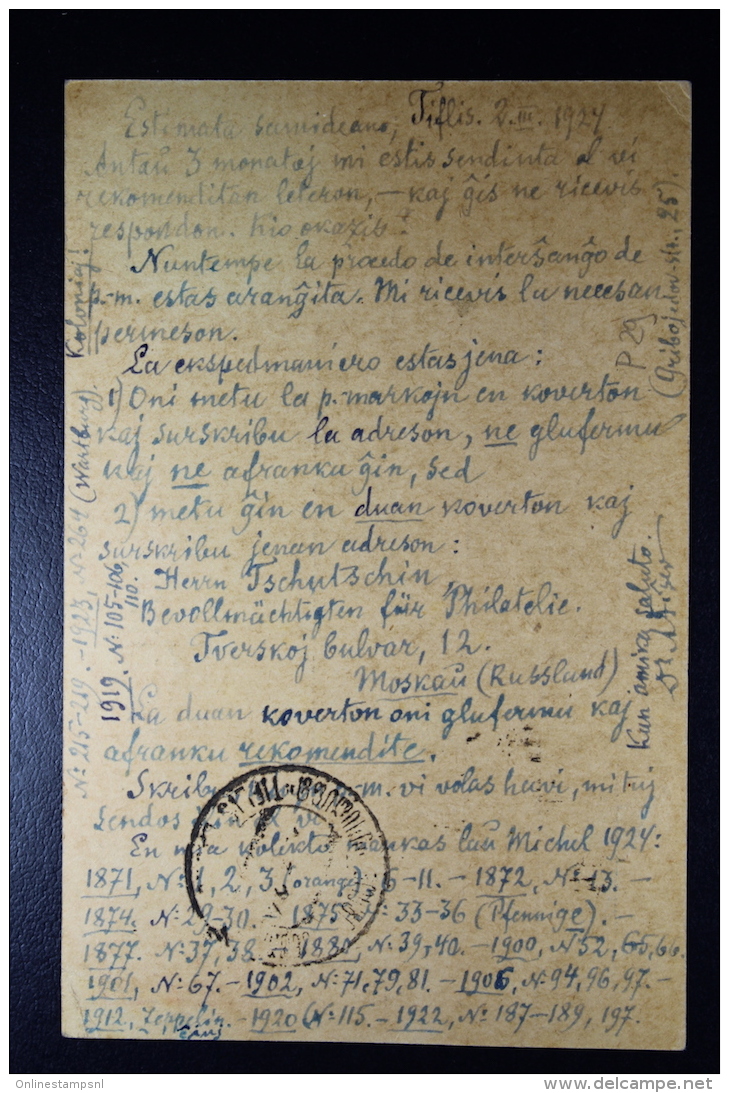 Tiflis. 2.III.1924
Estimata samideano,
Antaŭ 3 monatoj mi estis sendinta al vi
rekomenditan leteron, — kaj ĝis ne ricevis
respondon. Kio okazis?
Nuntempe la procedo de interŝanĝo de
p.-m. estas aranĝita. Mi ricevis la necesan
permeson.
La ekspedmaniero estas jena:
1) Oni metu la p.-markojn en koverton
kaj surskribu la adreson, ne glufermu
kaj ne afranku ĝin, sed
2) metu ĝin en duan koverton kaj
surskribu jenan adreson:
Herrn Tschutschin,
Bevollmächtigten für Philatelie.
Tverskoj bulvar, 12.
Moskau (Russland)
La duan koverton oni glufermu kaj
afranku rekomendite.
Skribu p.-m. vi volas havi, mi tuj
sendos ilin al vi
En mia kolekto mankas laŭ Michel 1924:
1871, № 1, 2, 3 (orange) 5-11. - 1872, № 13. -
1874. № 29-30. - 1875 № 33-36 (Pfennige). -
1877. № 37, 38. - 1880, № 39, 40. - 1900, № 52, 65, 66.
1901, № 67. - 1902, № 71, 79, 81. - 1905, № 94, 96, 97. -
1912, Zeppelin. - 1920 (№ 115. - 1922, № 187-189, 197.
№ 215-219. - 1923, № 264 (Wartburg).
1919. № 105-106,
110.
Kolonioj!
Kun amika saluto.
P 29
(Gribojedov-str., 25).
Onlinestampsnl
www.delcampe.net